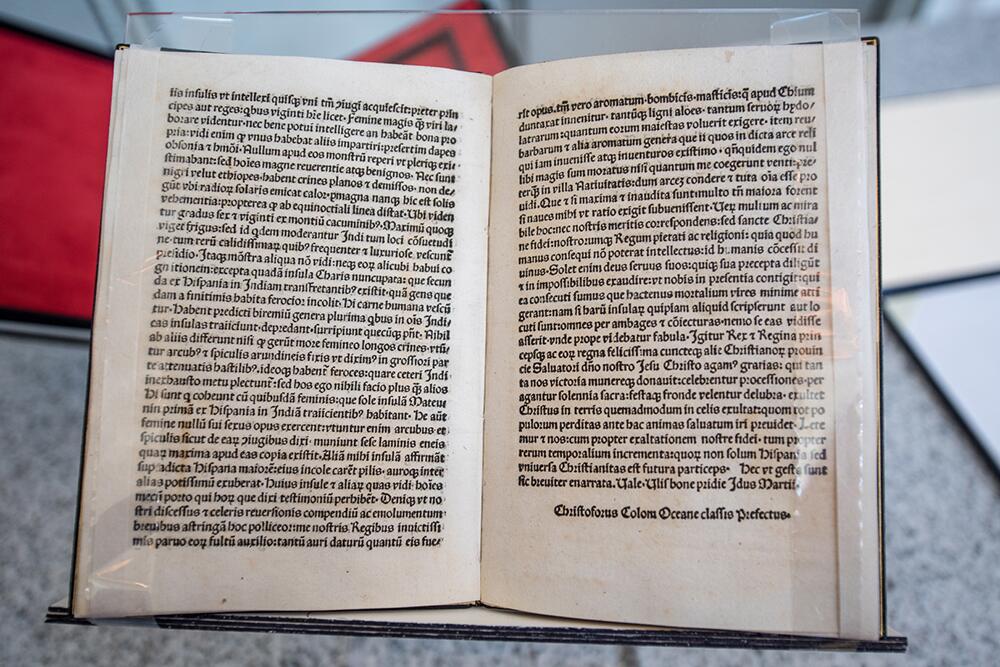 iis insulis vt intellexi quisqꝫ vni tm̄ ꝯiugi acquiescit: preter prin
cipes aut reges: qbus viginti hr̄e licet. Femine magis ꝗ̄ viri la/
borare videntur. nec bene potui intelligere an habeāt bona pro
pria: vidi enim ꝙ vnus habebat aliis impartiri: presertim dapes
obsonia ⁊ hmōi. Nullum apud eos monstrū reperi vt pleriqꝫ exi/
stimabant: sed hoīes magne reuerentie atqꝫ benignos. Nec sunt
nigri velut ethiopes. habent crines planos ⁊ demissos. non de/
gūt vbi radioꝝ solaris emicat calor. pmagna nanqꝫ hic est solis
vehementia: propterea ꝙ ab equinoctiali linea distat. Vbi viden
tur gradus sex ⁊ viginti ex montiū cacuminibꝰ. Maximū quoqꝫ
viget frigus: sed id qdem moderantur Indi tum loci cōsuetudi
ne. tum rerū calidissimaꝝ quibꝰ frequenter ⁊ luxuriose vescunt̄
presidio. Itaqꝫ mōstra aliqua nō vidi: neqꝫ eoꝝ alicubi habui co
gnitionem: excepta quadā insula Charis nuncupata: que secun
da ex Hispania in Indiam transfretantibꝰ existit. quā gens que
dam a finitimis habita ferocior incolit. Hi carne humana vescū
tur. Habent predicti biremiū genera plurima qbus in oīs Indi/
cas insulas traiiciunt. depredant. surripiunt quecūqꝫ pn̄t. Nihil
ab aliis differunt nisi ꝙ gerūt more femineo longos crines. vtū/
tur arcubꝰ ⁊ spiculis arundineis fixis vt diximꝰ in grossiori par
te attenuatis hastilibꝰ. ideoqꝫ habent̄ feroces: quare ceteri Indi
inexhausto metu plectunt̄: sed hos ego nihili facio plus ꝗ̄ alios
Hi sunt ꝗ coheunt cū quibusdā feminis: que sole insulā Mateu
nin primā ex Hispania in Indiā traiicientibꝰ habitant. He aūt
femine nullū sui sexus opus exercent: vtuntur enim arcubus et
spiculis sicut de eaꝝ ꝯiugibus dixi. muniunt sese laminis eneis
quaꝝ maxima apud eas copia existit. Aliā mihi insulā affirmāt
supradicta Hispana maiorē: eius incole carēt pilis. auroqꝫ inter
alias potissimū exuberat. Huius insule ⁊ aliaꝝ quas vidi hoīes
mecū porto qui hoꝝ que dixi testimoniū perhibēt. Deniqꝫ vt no
stri discessus ⁊ celeris reuersionis compendiū ac emolumentum
breuibus astringā hoc polliceor: me nostris Regibus inuictissi
mis paruo eoꝝ fultū auxilio: tantū auri daturū quantū eis fue/
rit opus. tm̄ vero aromatum. bombicis. masticis: q̄ apud Chium
duntaxat inuenitur. tantūqꝫ ligni aloes. tantum seruoꝝ hydo/
latrarum: quantum eorum maiestas voluerit exigere. item reu/
barbarum ⁊ alia aromatum genera que ii quos in dicta arce reli
qui iam inuenisse atqꝫ inuenturos existimo. qn̄quidem ego nul
libi magis sum moratus nisi quantum me coegerunt venti: pre/
terqꝫ in villa Natiuitatis: dum arcem condere ⁊ tuta oīa esse pro
uidi. Que ⁊ si maxima ⁊ inaudita sunt: multo tn̄ maiora forent
si naues mihi vt ratio exigit subuenissent. Veꝝ multum ac mira
bile hoc: nec nostris meritis correspondens: sed sancte Christia/
ne fidei: nostrorumqꝫ Regum pietati ac religioni: quia quod hu
manus consequi nō poterat intellectus: id humanis cōcessit di
uinus. Solet enim deus seruos suos: quiqꝫ sua precepta diligūt
⁊ in impossibilibus exaudire: vt nobis in presentia contigit: qui
ea consecuti sumus que hactenus mortalium vires minime atti
gerant: nam si harū insulaꝝ quipiam aliquid scripserunt aut lo
cuti sunt: omnes per ambages ⁊ cōiecturas. nemo se eas vidisse
asserit. vnde prope videbatur fabula. Igitur Rex ⁊ Regina prin
cepsqꝫ ac eoꝝ regna felicissima cuncteqꝫ alie Christianoꝝ prouin
cie Saluatori dn̄o nostro Jesu Christo agamꝰ gratias: qui tan
ta nos victoria munereqꝫ donauit: celebrentur processiones. per
agantur solennia sacra: festaqꝫ fronde velentur delubra. exultet
Christus in terris quemadmodum in celis exultat: quom tot po
pulorum perditas ante hac animas saluatum iri preuidet. Lete
mur ⁊ nos: cum propter exaltationem nostre fidei. tum propter
rerum temporalium incrementa: quoꝝ non solum Hispania sed
vniuersa Christianitas est futura particeps. Hec vt gesta sunt
sic breuiter enarrata. Vale. Vlisbone pridie Idus Martii.
Christoforus Colom Oceane classis Prefectus.